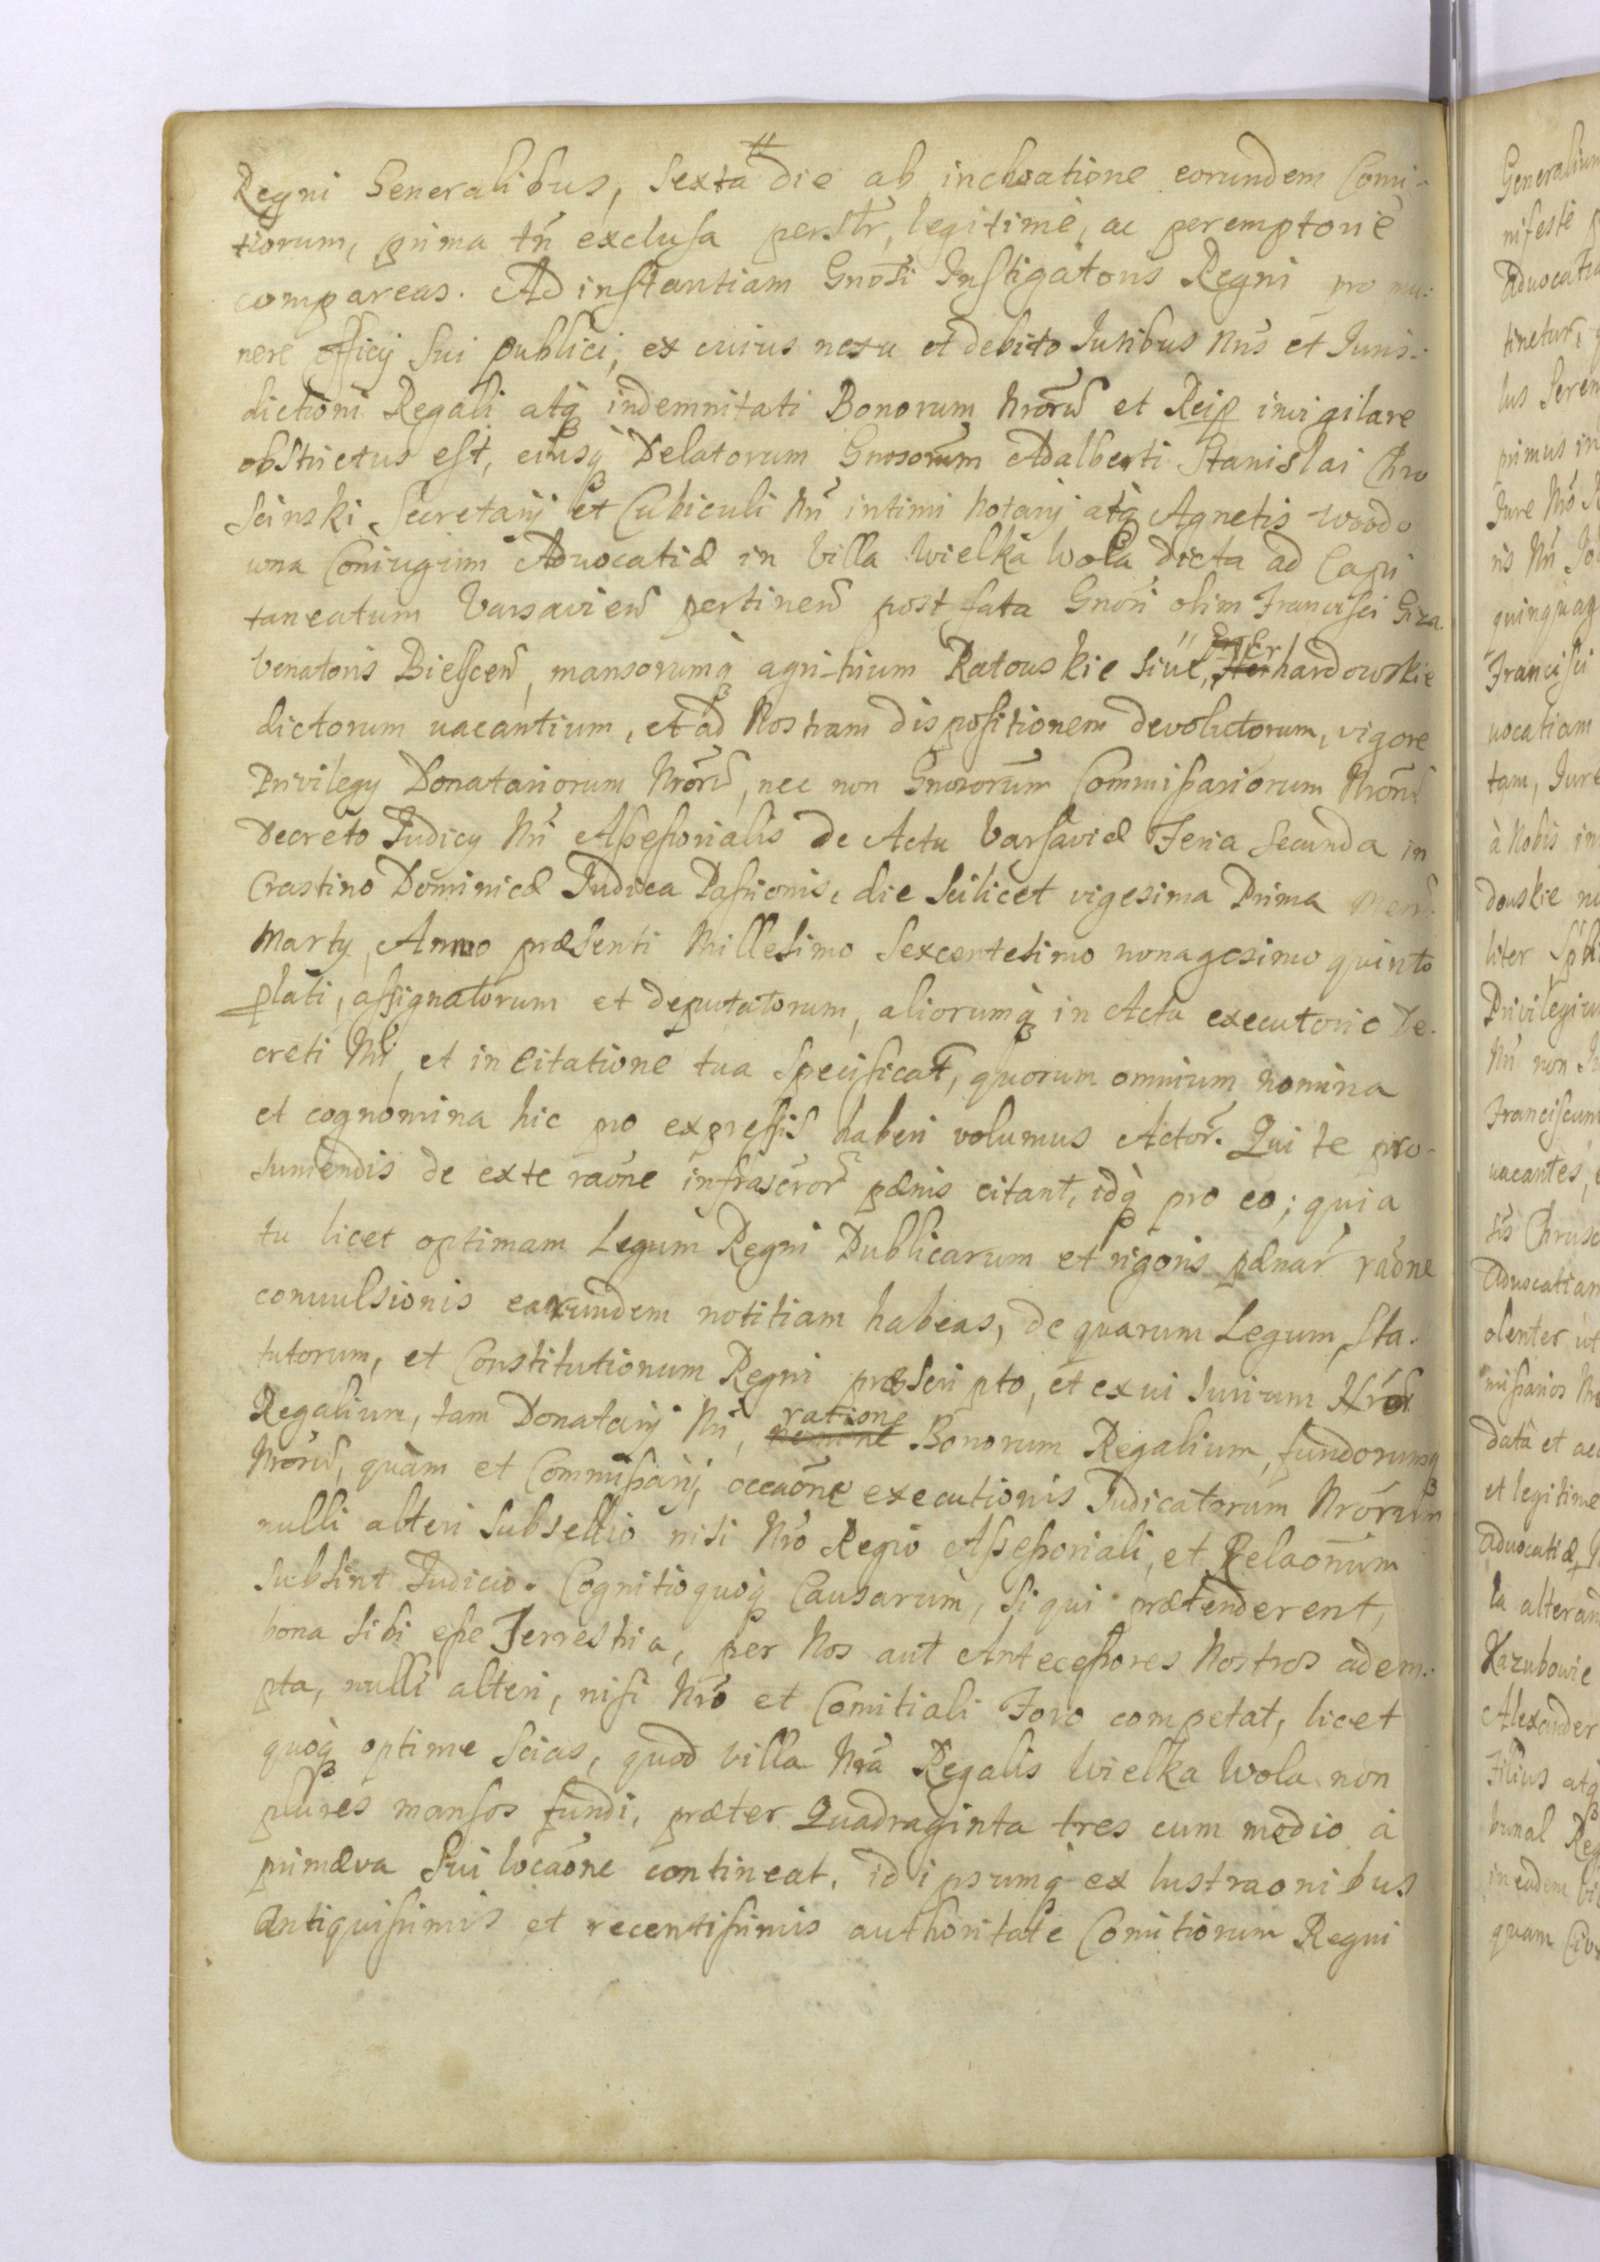 Regni Generalibus, sexta die ab inchoatione eorundem Comi-
tiorum, prima tñ exclusa perstr, legitimè, ac peremptoriè
compareas. Ad instantiam Gnosi Instigatoris Regni pro mu-
nere officij sui publici, ex cuius nexu et debito Iuribus Nris et Iuris-
dictioni Regali atq indemnitati Bonorum Nrorũ et Reip invigilare
obstrictus est, eiusq Delatorum Gnosorum Adalberti Stanislai Chro
scinski Secretarij et Cubiculi Nri intimi Notarij atq Agnetis Woodo
wna Coniugum Advocatiæ in Villa Wielka Wola dicta ad Capi
taneatum Varsavien pertinen post fata Gnosi olim Francisci Giza
Venatoris Bielscen, mansorumq agri trium Ratouskie siue, Gerhardowskie
dictorum uacantium, et ad Nostram dispositionem devolutorum, vigore
Privilegy Donatariorum Nrorũ, nec non Gnosorum Commissariorum Nrorũ
Decreto Iudicy Nri Assessorialis de Actu Varsaviæ Feria secunda in
Crastino Dominicæ Iudica Passionis, die scilicet vigesima Prima Mens
Marty, Anno præsenti Millesimo sexcentesimo nonagesimo quinto
plati, assignatorum et deputatorum, aliorumq in Acta executorio De-
creti Nri, et in Citatione tua specificat, quorum omnium nomina
et cognomina hic pro expressis haberi volumus Actor. Qui te pro-
sumendis de ex te raone infrascror pænis citant, idq pro eo; quia
tu licet optimam Legum Regni Publicarum et rigoris pænar raone
conuulsionis earundem notitiam habeas, de quarum Legum, Sta-
tutorum, et Constitutionum Regni præscripto, et ex ui Iurium Nror
Regalium, tam Donatarij Nri, ratione Bonorum Regalium, fundorumq
Nrorũ, quàm et Commissarij, occaone executionis Iudicatorum Nrorum
nulli alteri subsellio nisi Nro Regio Assessoriali, et Relaonum
subsint Iudicio. Cognitio quoq Causarum, si qui prætenderent,
bona sibi esse Terrestria, per Nos aut Antecessores Nostros adem-
pta, nulli alteri, nisi Nro et Comitiali Foro competat, licet
quoq optime scias, quod villa Nra Regalis Wielka Wola non
plures mansos fundi, præter Quadraginta tres cum medio à
primæva sui locaone contineat, id ipsumq ex lustraonibus
antiquissimis et recentissimis authoritate Comitiorum Regni